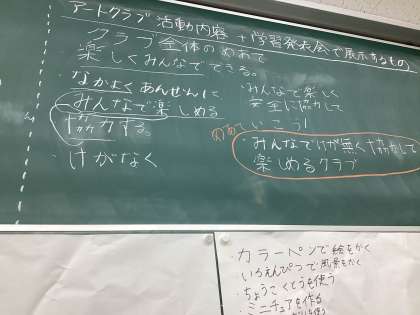 アートクラブ 活動内容 + 学習発表会で展示するもの
クラブ全体のめあて
楽しくみんなでできる。
・なかよくあんぜんに
・みんなで楽しめる
協力する。
・けがなく
・みんなで楽しく
安全に協力して
いこう!
・みんなでけが無く協力して
楽しめるクラブ
・カラーペンで絵をかく
・いろえんぴつで風景をかく
・ちょうこくとうを使う
・ミニチュアを作る